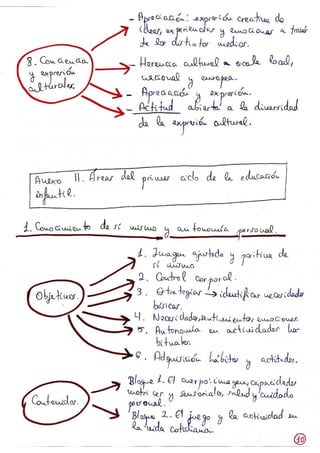 - Apreciación: expresión creativa de
ideas, experiencias y emociones a través
de los distintos medios.
8. Conciencia
y expresión
culturales.
- Herencia cultural a escala local,
nacional y europea.
- Apreciación y expresión.
- Actitud abierta a la diversidad
de la expresión cultural.
Anexo II. Áreas del primer ciclo de la educación
infantil.
1. Conocimiento de sí mismo y autonomía personal.
Objetivos.
1. Imagen ajustada y positiva de
sí mismo
2. Control corporal.
3. Estrategias → identificar necesidades
básicas.
4. Necesidades, sentimientos, emociones.
5. Autonomía en actividades ha-
bituales.
6. Adquisición hábitos y actitudes.
Contenidos.
Bloque 1. El cuerpo: imagen, capacidades
motrices y sensoriales, salud y cuidado
personal.
Bloque 2. El juego y la actividad en
la vida cotidiana.
10